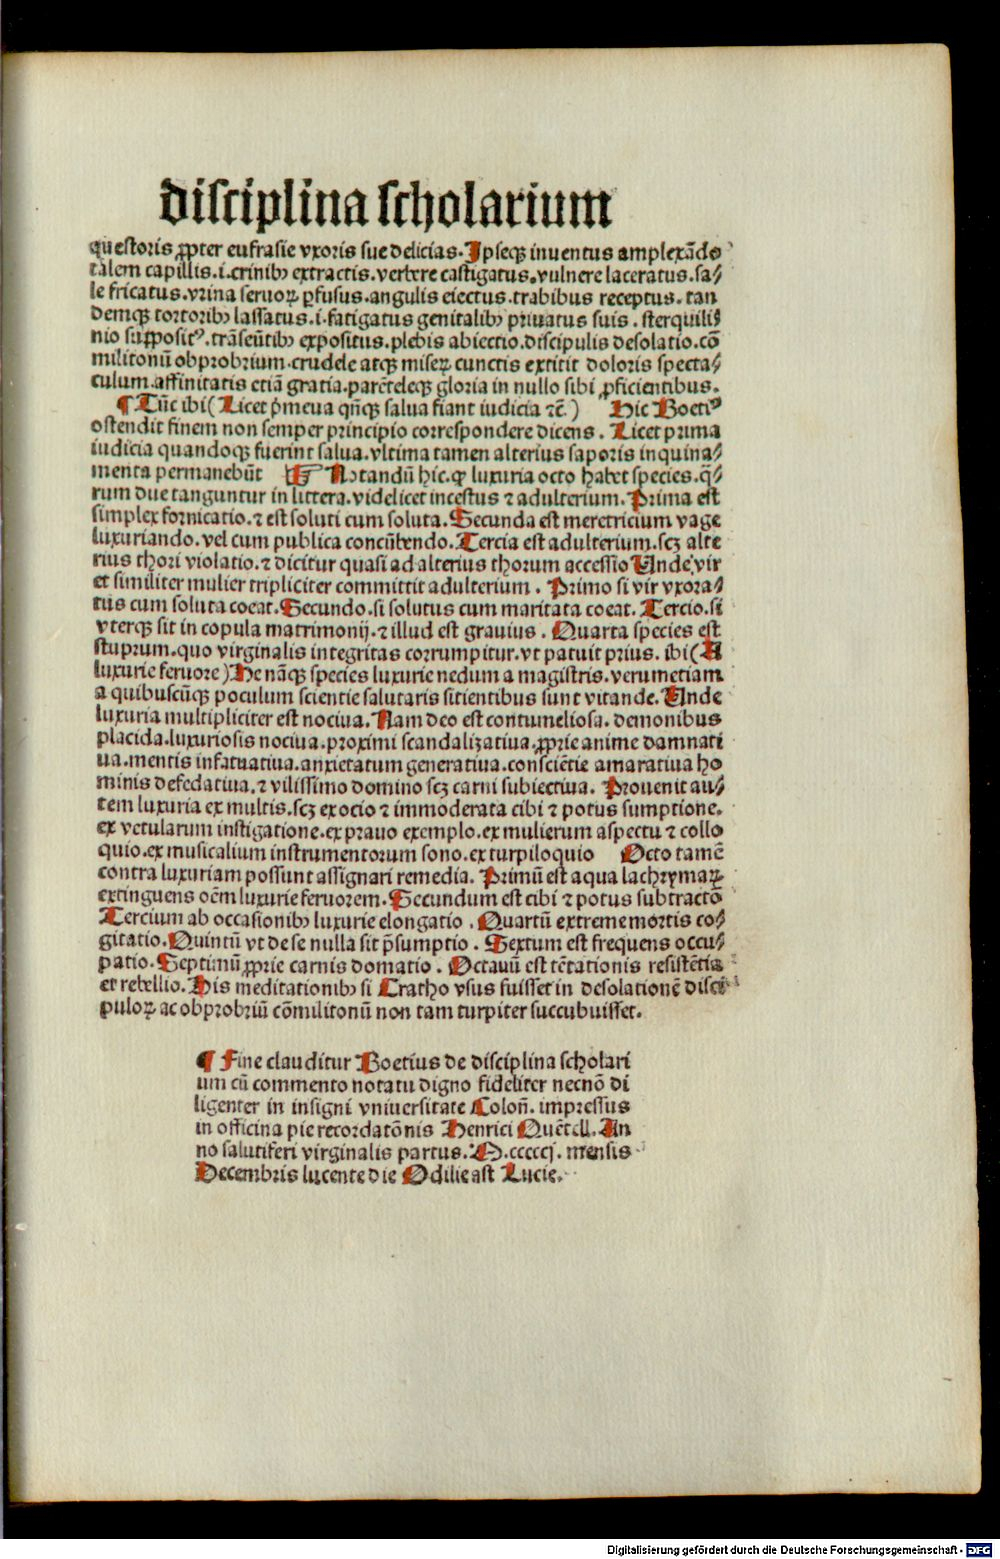 disciplina scholarium
questoris ꝓpter eufrasie vxoris sue delicias. Ipseqꝫ inuentus amplexādo
talem capillis.i.crinibꝫ extractis.verbere castigatus.vulnere laceratus.sa⸗
le fricatus.vrina seruoꝝ ꝑfusus.angulis eiectus.trabibus receptus.tan
demqꝫ tortoribꝫ lassatus.i.fatigatus genitalibꝫ priuatus suis. sterquili⸗
nio supposit⁹.trāseūtibꝫ expositus.plebis abiectio.discipulis desolatio.cō
militonū obprobrium.crudele atqꝫ miseꝝ cunctis extitit doloris specta⸗
culum.affinitatis etiā gratia.parēteleqꝫ gloria in nullo sibi ꝓficientibus.
¶ Tūc ibi (Licet p̄meua qn̄qꝫ salua fiant iudicia ⁊c̄) Hic Boeti⁹
ostendit finem non semper principio correspondere dicens. Licet prima
iudicia quandoqꝫ fuerint salua.vltima tamen alterius saporis inquina⸗
menta permanebūt ☞ Notandū hic.ꝙ luxuria octo habet species.q̄⸗
rum due tanguntur in littera.videlicet incestus ⁊ adulterium. Prima est
simplex fornicatio.⁊ est soluti cum soluta. Secunda est meretricium vage
luxuriando.vel cum publica concūbendo. Tercia est adulterium.scꝫ alte
rius thori violatio.⁊ dicitur quasi ad alterius thorum accessio Unde vir
et similiter mulier tripliciter committit adulterium. Primo si vir vxora⸗
tus cum soluta coeat. Secundo.si solutus cum maritata coeat. Tercio.si
vterqꝫ sit in copula matrimonij.⁊ illud est grauius. Quarta species est
stuprum.quo virginalis integritas corrumpitur.vt patuit prius. ibi (A
luxurie feruore) He nāqꝫ species luxurie nedum a magistris.verumetiam
a quibuscūqꝫ poculum scientie salutaris sitientibus sunt vitande. Unde
luxuria multipliciter est nociua. Nam deo est contumeliosa. demonibus
placida.luxuriosis nociua.proximi scandalizatiua.ꝓprie anime damnati
ua.mentis infatuatiua.anxietatum generatiua.consciētie amaratiua ho
minis defedatiua.⁊ vilissimo domino scꝫ carni subiectiua. Prouenit au⸗
tem luxuria ex multis.scꝫ ex ocio ⁊ immoderata cibi ⁊ potus sumptione.
ex vetularum instigatione.ex prauo exemplo.ex mulierum aspectu ⁊ collo
quio.ex musicalium instrumentorum sono.ex turpiloquio Octo tamē
contra luxuriam possunt assignari remedia. Primū est aqua lachrymaꝝ
extinguens oēm luxurie feruorem. Secundum est cibi ⁊ potus subtractō
Tercium ab occasionibꝫ luxurie elongatio. Quartū extreme mortis co⸗
gitatio. Quintū vt de se nulla sit p̄sumptio. Sextum est frequens occu⸗
patio. Septimū ꝓprie carnis domatio. Octauū est tētationis resistētia
et rebellio. His meditationibꝫ si Cratho vsus fuisset in desolationē disci
puloꝝ ac obprobriū cōmilitonū non tam turpiter succubuisset.
¶ Fine clauditur Boetius de disciplina scholari
um cū commento notatu digno fideliter necnō di
ligenter in insigni vniuersitate Colon̄. impressus
in officina pie recordatōnis Henrici Quētell. An
no salutiferi virginalis partus. M.cccccj. mensis
Decembris lucente die Odilie ast Lucie.
Digitalisierung gefördert durch die Deutsche Forschungsgemeinschaft - DFG